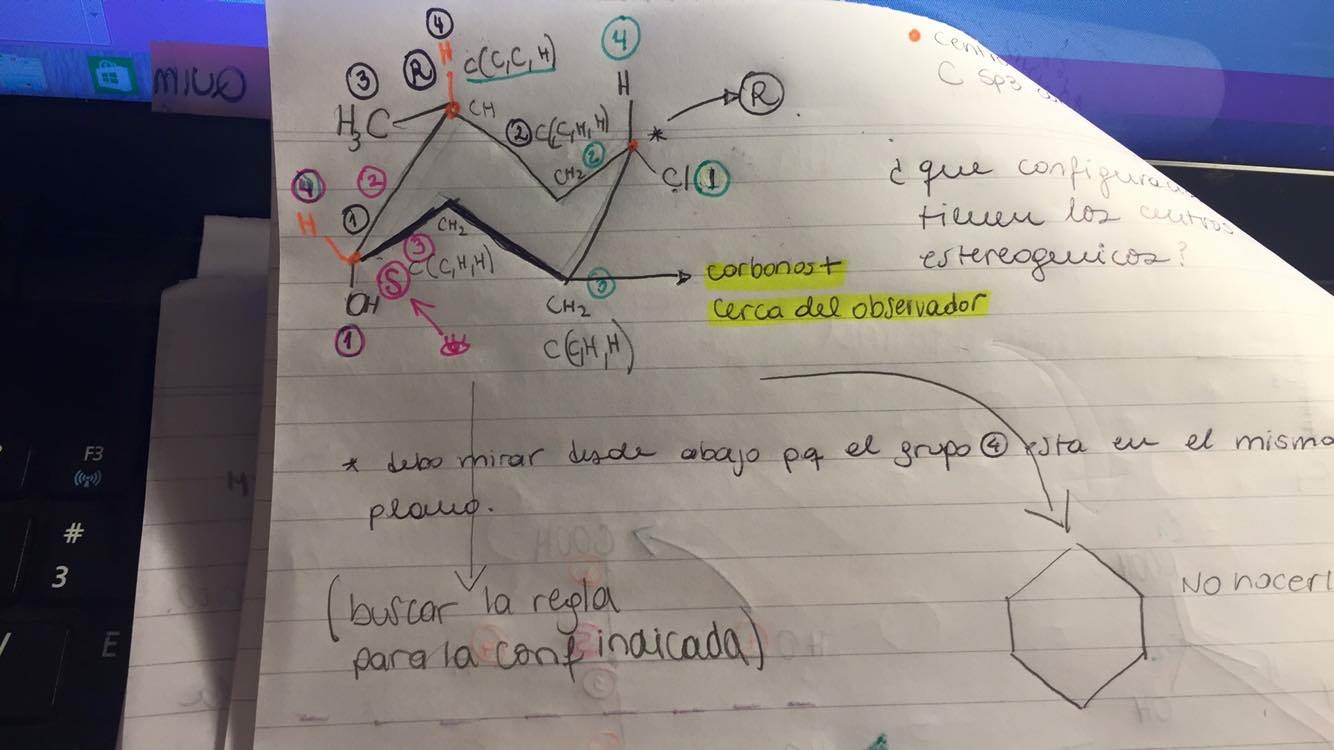 ④
H
③ Ⓡ C(C,C,H)
H₃C CH
② C(C,H,H)
④
H
* Ⓡ
CH₂ ②
Cl ①
④ ②
H ①
CH₂
③
C(C,H,H)
OH Ⓢ
①
CH₂ ③
C(C,H,H)
carbonos +
cerca del observador
C sp3
¿que
tienen los centros
estereogenicos?
* debo mirar desde abajo pq el grupo ④ esta en el mismo
plano.
(buscar la regla
para la conf indaicada)
No
F3
#
3
E